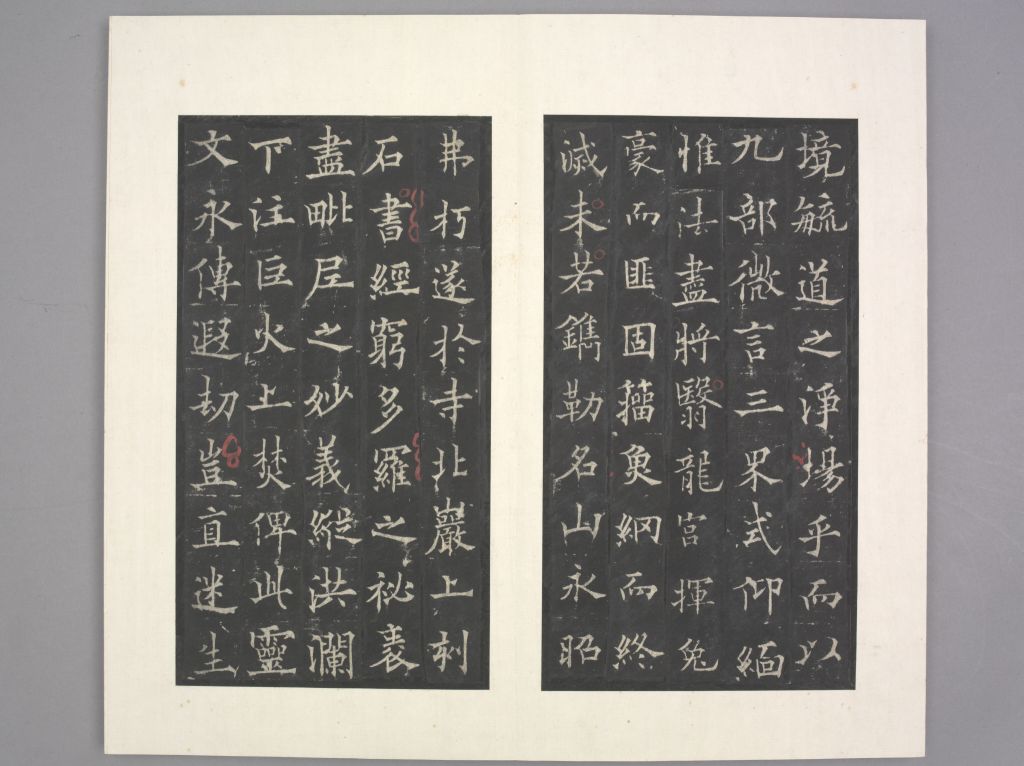 境毓道之淨場乎而以
九部微言三界式仰緬
惟法盡將翳龍宮揮兔
豪而匪固籀臮網而終
滅未若鐫勒名山永昭
弗朽遂於寺北巖上刻
石書經窮多羅之祕袠
盡毗尼之妙義縱洪瀾
下注巨火上焚俾此靈
文永傳遐劫豈直迷生